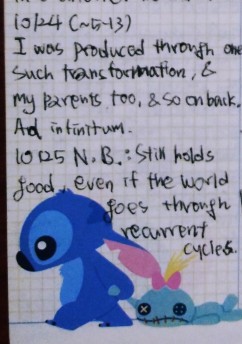 10/24 (~5-13)
I was produced through one
such transformation, &
my parents too, & so on back,
Ad infinitum.
10/25 N.B.: Still holds
good, even if the world
goes through
recurrent
cycles.